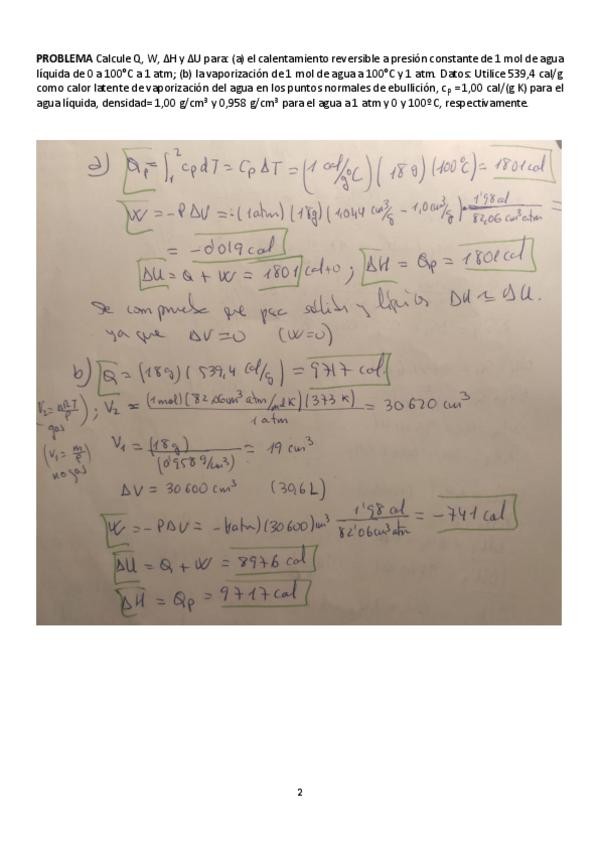 PROBLEMA Calcule Q, W, ΔH y ΔU para: (a) el calentamiento reversible a presión constante de 1 mol de agua
líquida de 0 a 100°C a 1 atm; (b) la vaporización de 1 mol de agua a 100°C y 1 atm. Datos: Utilice 539,4 cal/g
como calor latente de vaporización del agua en los puntos normales de ebullición, cₚ =1,00 cal/(g K) para el
agua líquida, densidad= 1,00 g/cm³ y 0,958 g/cm³ para el agua a 1 atm y 0 y 100ºC, respectivamente.
a) Qp = ∫₁² cp dT = Cp ΔT = (1 cal/g°C) (18 g) (100°C) = 1801 cal
W = -P ΔV = -(1 atm) (18 g) (1,044 cm³/g - 1,0 cm³/g) · 1'98 cal / 82,06 cm³ atm =
= -0'019 cal
ΔU = Q + W = 1801 cal+0 ; ΔH = Qp = 1801 cal
Se comprueba que para sólidos y líquidos ΔH ≃ ΔU.
ya que ΔV=0 (W=0)
b) Q = (18 g) (539,4 cal/g) = 9717 cal
(V₂ = nRT/P) gas ; V₂ = (1 mol) (82,06 cm³ atm/mol K) (373 K) / 1 atm = 30620 cm³
(V₁ = m/ρ) no gas V₁ = (18 g) / (0'958 g/cm³) = 19 cm³
ΔV = 30600 cm³ (30,6 L)
W = -PΔV = -(1 atm) (30600) cm³ 1'98 cal / 82'06 cm³ atm = -741 cal
ΔU = Q + W = 8976 cal
ΔH = Qp = 9717 cal
2